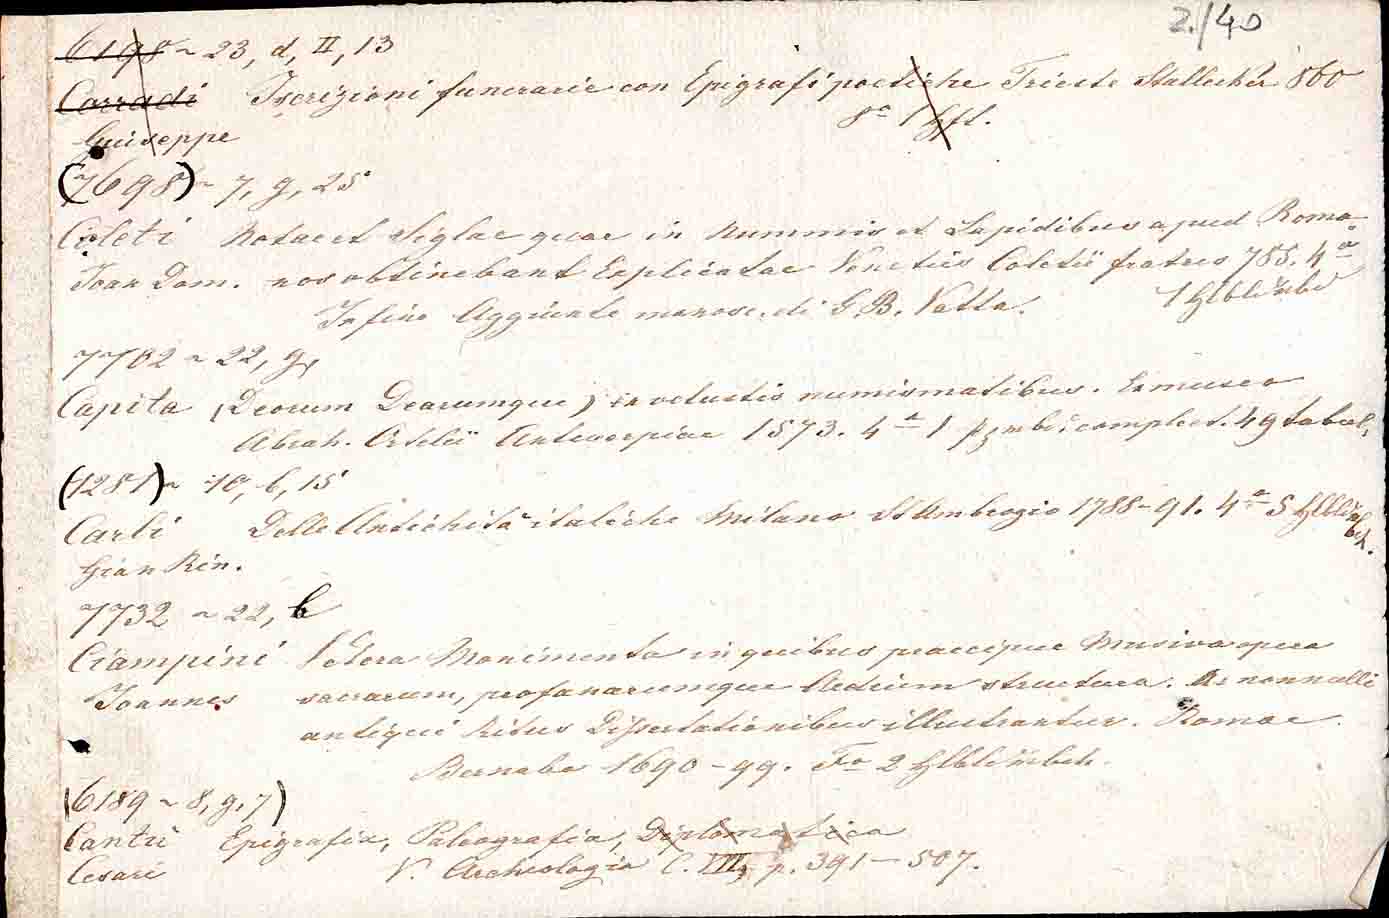 2./40
6198 ~ 23, d, II, 13
Corradi Iscrizioni funerarie con Epigrafi poetiche Trieste 860
Guiseppe 8° 1 Hft.
(7698) ~ 7, g, 25
Coleti Notae et Siglae quae in Nummis et Lapidibus apud Roma-
Joan Dom. nos obtinebant Explicatae Venetiis Coletii fratres 785. 4°
In fine Aggiunte manosc. di G. B. Vatta. 1 Hlblwbd
7702 ~ 22, g,
Capita (Deorum Dearumque) ex vetustis numismatibus. Ex museo
Abrah. Ortelii Antwerpiae 1573. 4° 1 complect. 49 tabul,
(1281) ~ 10, b, 15
Carli Delle Antichità italiche Milano St Ambrogio 1788-91. 4° 5
Gian Rin.
7732 ~ 22, b
Ciampini Vetera Monimenta in quibus praecipue Musiva opera
Joannes sacrarum, profanarumque Aedium structura. Ac nonnulli
antiqui Ritus Dissertationibus illustrantur. Romae.
Bernabo 1690-99. F° 2
(6189 ~ 8, g, 7)
Cantù Epigrafia, Paleografia, Diplomatica
Cesare V. Archeologia C. VII, p. 391-507.